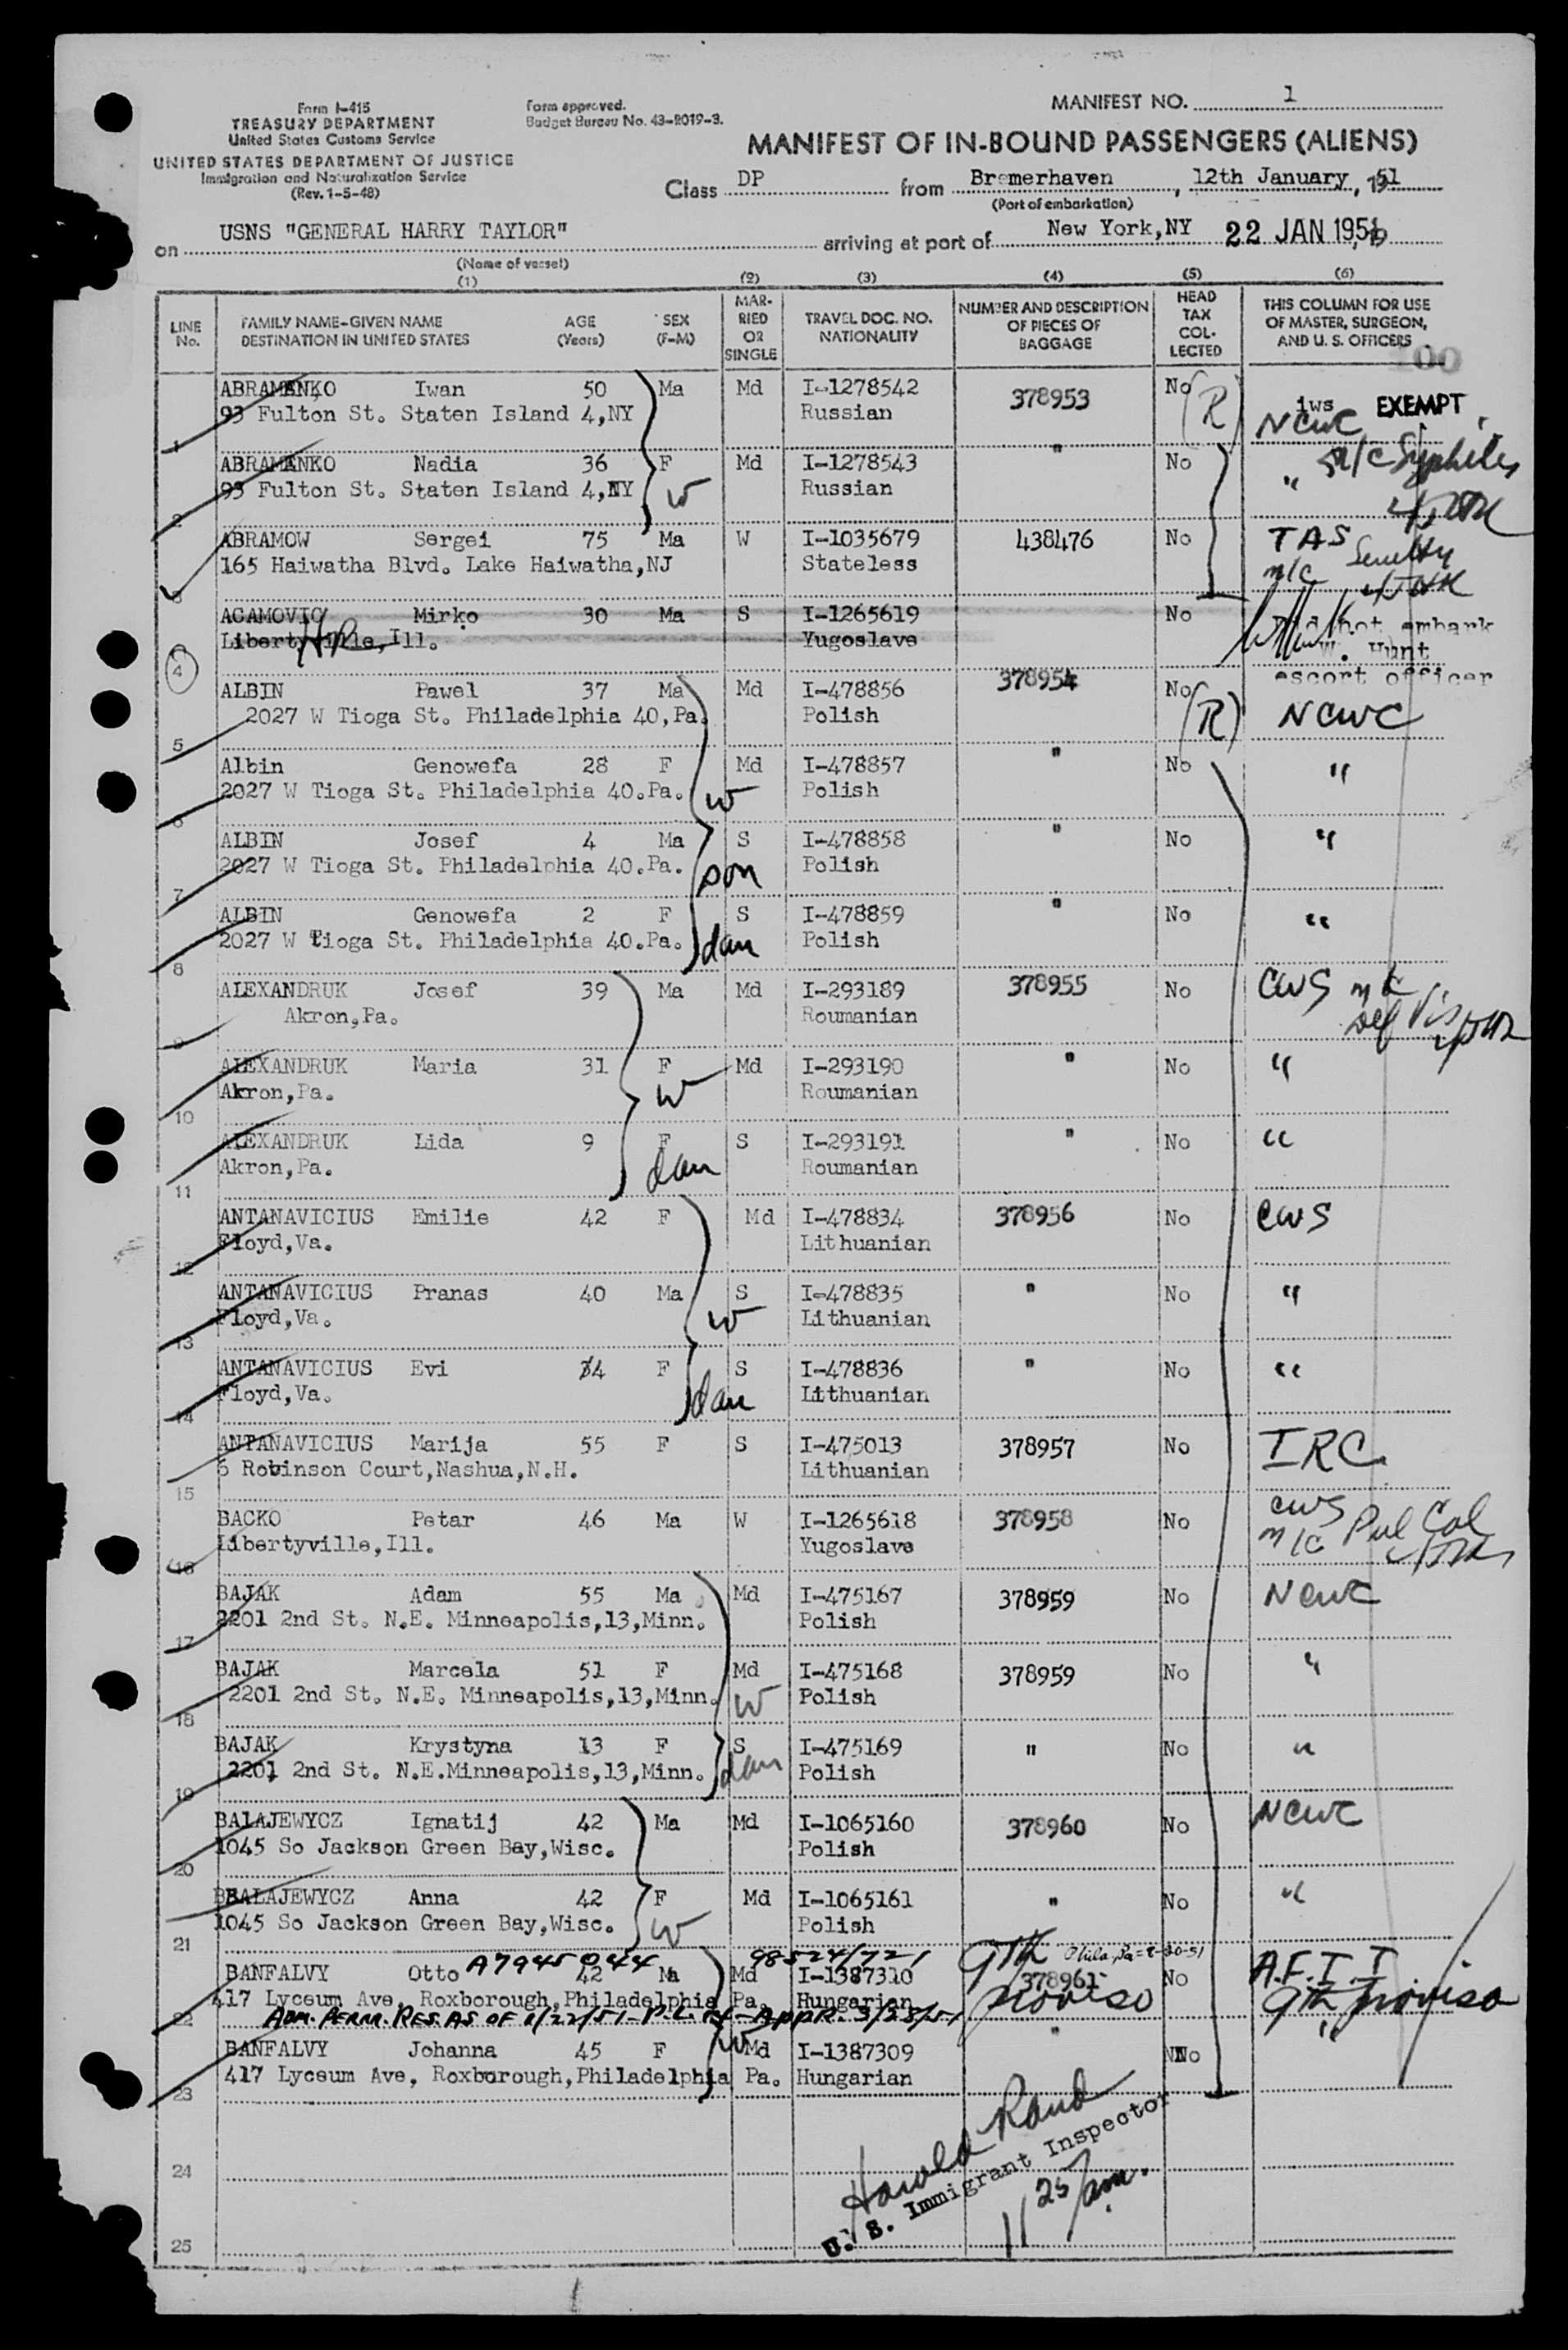 Form I-415
TREASURY DEPARTMENT
United States Customs Service
UNITED STATES DEPARTMENT OF JUSTICE
Immigration and Naturalization Service
(Rev. 1-5-48)
Form approved.
Budget Bureau No. 43-R019-3.
MANIFEST NO. 1
MANIFEST OF IN-BOUND PASSENGERS (ALIENS)
Class DP from Bremerhaven, 12th January, 1951
(Port of embarkation)
on USNS "GENERAL HARRY TAYLOR" arriving at port of New York,NY 22 JAN 1951
(Name of vessel)
(1) (2) (3) (4) (5) (6)
LINE No. FAMILY NAME-GIVEN NAME DESTINATION IN UNITED STATES AGE (Years) SEX (F-M) MARRIED OR SINGLE TRAVEL DOC. NO. NATIONALITY NUMBER AND DESCRIPTION OF PIECES OF BAGGAGE HEAD TAX COLLECTED THIS COLUMN FOR USE OF MASTER, SURGEON, AND U. S. OFFICERS
100
ABRAMENKO Iwan 50 Ma Md I-1278542 378953 No (R) iws EXEMPT
93 Fulton St. Staten Island 4,NY Russian NCWC
1
ABRAMENKO Nadia 36 F Md I-1278543 " No " m/c Syphilis
93 Fulton St. Staten Island 4,NY W Russian
2
ABRAMOW Sergei 75 Ma W I-1035679 438476 No TAS
165 Haiwatha Blvd. Lake Haiwatha,NJ Stateless m/c Senility
3
ACAMOVIC Mirko 30 Ma S I-1265619 No Did not embark
Libertyville,Ill. Yugoslave W. Hunt
4 escort officer
ALBIN Pawel 37 Ma Md I-478856 378954 No (R) NCWC
2027 W Tioga St. Philadelphia 40,Pa. Polish
5
Albin Genowefa 28 F Md I-478857 " No "
2027 W Tioga St. Philadelphia 40.Pa. W Polish
6
ALBIN Josef 4 Ma S I-478858 " No "
2027 W Tioga St. Philadelphia 40.Pa. son Polish
7
ALBIN Genowefa 2 F S I-478859 " No "
2027 W Tioga St. Philadelphia 40.Pa. dau Polish
8
ALEXANDRUK Josef 39 Ma Md I-293189 378955 No CWS m/c
Akron,Pa. Roumanian Def Vis
9
ALEXANDRUK Maria 31 F Md I-293190 " No "
Akron,Pa. W Roumanian
10
ALEXANDRUK Lida 9 F S I-293191 " No "
Akron,Pa. dau Roumanian
11
ANTANAVICIUS Emilie 42 F Md I-478834 378956 No CWS
Floyd,Va. Lithuanian
12
ANTANAVICIUS Pranas 40 Ma S I-478835 " No "
Floyd,Va. W Lithuanian
13
ANTANAVICIUS Evi 4 F S I-478836 " No "
Floyd,Va. dau Lithuanian
14
ANTANAVICIUS Marija 55 F S I-475013 378957 No IRC
5 Robinson Court,Nashua,N.H. Lithuanian
15
BACKO Petar 46 Ma W I-1265618 378958 No CWS
Libertyville,Ill. Yugoslave m/c Pul Cal
16
BAJAK Adam 55 Ma Md I-475167 378959 No NCWC
2201 2nd St. N.E. Minneapolis,13,Minn. Polish
17
BAJAK Marcela 51 F Md I-475168 378959 No "
2201 2nd St. N.E. Minneapolis,13,Minn. W Polish
18
BAJAK Krystyna 13 F S I-475169 " No "
2201 2nd St. N.E.Minneapolis,13,Minn. dau Polish
19
BALAJEWYCZ Ignatij 42 Ma Md I-1065160 378960 No NCWC
1045 So Jackson Green Bay,Wisc. Polish
20
BALAJEWYCZ Anna 42 F Md I-1065161 " No "
1045 So Jackson Green Bay,Wisc. W Polish
21
A7945044 98524/721 9th Phila, Pa=8-30-51
BANFALVY Otto 42 Ma Md I-1387310 378961 No A.F.I.I
417 Lyceum Ave, Roxborough,Philadelphia Pa. Hungarian Proviso 9th Proviso
22 ADM. PERM. RES. AS OF 1/22/51-P.L. 14-APPR. 3/28/51
BANFALVY Johanna 45 F W Md I-1387309 " No "
417 Lyceum Ave, Roxborough,Philadelphia Pa. Hungarian
23
Harold Rand
U. S. Immigrant Inspector
24
11 25/am.
25